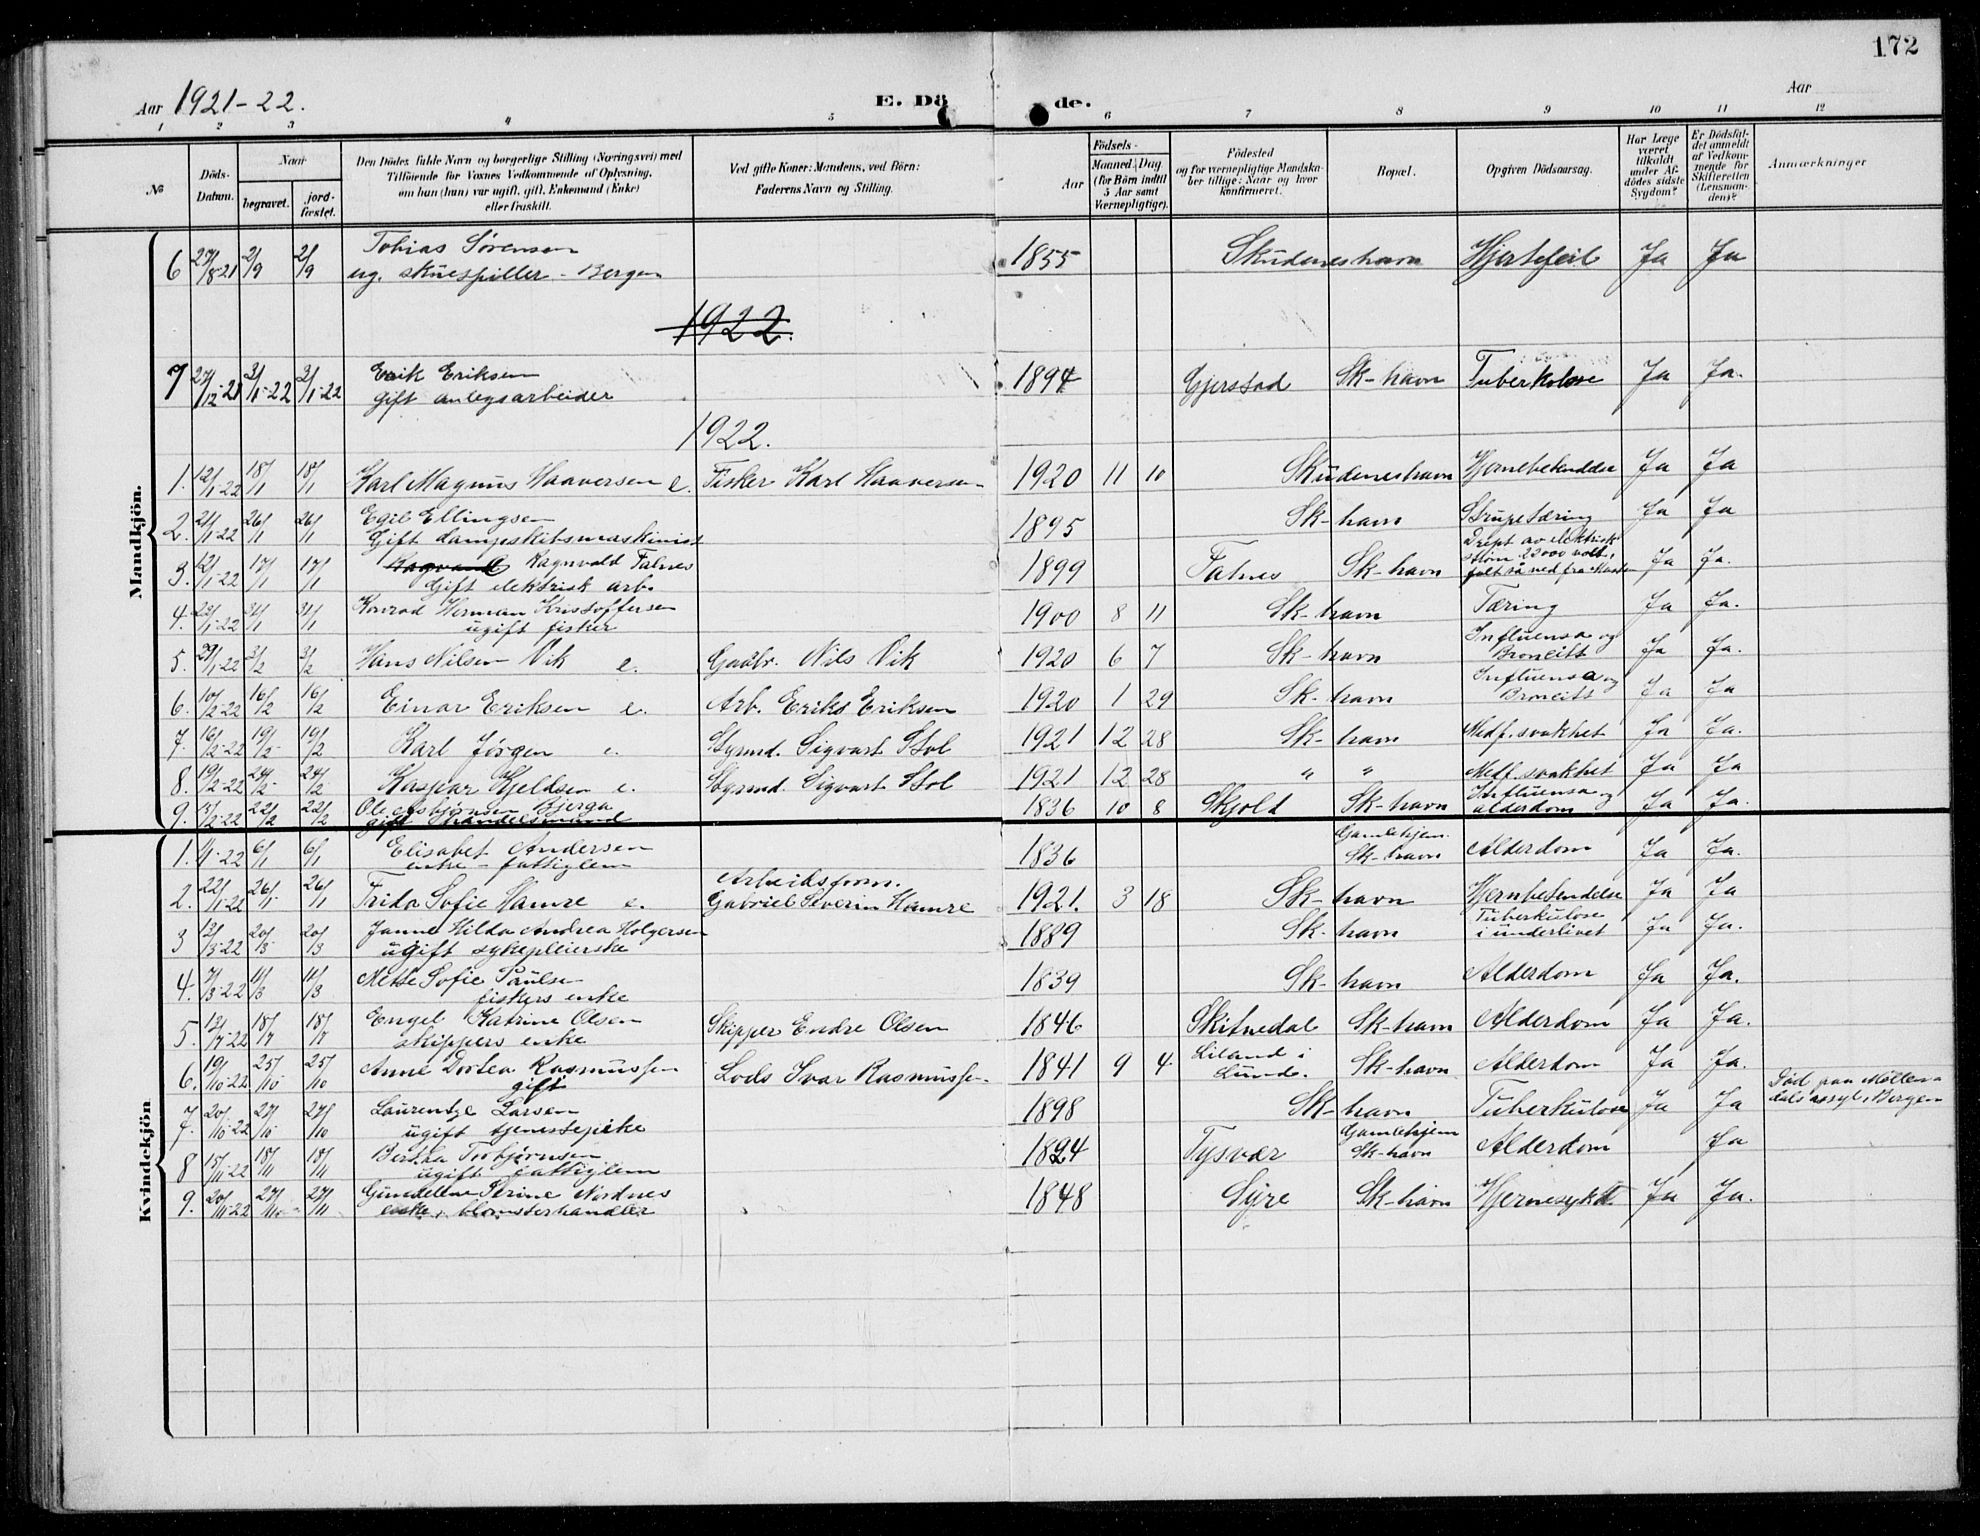 172
Aar 1921-22.
E. Dö de.
Aar
1 2 3 4 5 6 7 8 9 10 11 12
No
Döds-Datum.
Naar
begravet.
jord-fæstet.
Den Dödes fulde Navn og borgerlige Stilling (Næringsvei) med
Tilföiende for Voxnes Vedkommende af Oplysning,
om han (hun) var ugift, gift, Enkemand (Enke)
eller fraskilt.
Ved gifte Koner: Mandens, ved Börn:
Faderens Navn og Stilling.
Födsels-
Aar
Maaned. Dag
(for Börn indtil 5 Aar samt Værnepligtige).
Födested
og for værnepligtige Mandska-
ber tillige: Naar og hvor
konfirmeret.
Bopæl.
Opgiven Dödsaarsag.
Har Læge været tilkaldt under Afdödes sidste Sygdom?
Er Dödsfaldet anmeldt af Vedkommende for Skifteretten (Lensmanden)?
Anmærkninger
Mandkjön.
6 27/8-21 2/9 2/9 Tobias Sørensen 1855 Skudeneshavn Hjertefeil Ja Ja
ug. skuespiller - Bergen
1922.
7 27/12-21 3/1-22 3/1-22 Erik Eriksen 1894 Gjerstad Sk-havn Tuberkulose Ja Ja.
gift anlegsarbeider
1922.
1. 12/1-22 18/1 18/1 Karl Magnus Haaversen e. Fisker Karl Haaversen 1920 11 10 Skudeneshavn Hjernebetendelse Ja Ja
2. 21/1-22 26/1 26/1 Egil Ellingsen 1895 Sk-havn Strupetæring Ja Ja
Gift dampskibsmaskinist
3. 12/1-22 17/1 17/1 Ragnvald Ragnvald Falnes 1899 Falnes Sk-havn Drept av elektrisk strøm 22000 volt, falt så ned fra Masten Ja Ja.
Gift elektrisk arb.
4. 23/1-22 31/1 31/1 Konrad Herman Kristoffersen 1900 8 11 Sk-havn Tæring Ja Ja.
ugift fisker
5. 29/1-22 3/2 3/2 Hans Nilsen Vik e. Gaabr. Nils Vik 1920 6 7 Sk-havn Influensa og Broncitt Ja Ja.
6. 10/2-22 16/2 16/2 Einar Eriksen e. Arb. Eriks Eriksen 1920 1 29 Sk-havn Influensa og Broncitt Ja Ja
7. 16/2-22 19/2 19/2 Karl Jørgen e. Styrmd. Sigvart Stol 1921 12 28 Sk-havn Medf. svakhet Ja Ja.
8. 19/2-22 24/2 24/2 Kaspar Kjeldsen e. Styrmd. Sigvart Stol 1921 12 28 " " Medf. svakhet Ja Ja
9. 15/2-22 22/2 22/2 Ole Asbjørnsen Bjerga 1836 10 8 Skjold Sk-havn Influensa og alderdom Ja Ja.
gift handelsmand
Kvindekjön
1. 1/1-22 6/1 6/1 Elisabet Andersen 1836 Gamlehjem. Sk-havn Alderdom Ja Ja.
enke - fattiglem
2. 22/1-22 26/1 26/1 Frida Sofie Hamre e. Arbeidsform. Gabriel Severin Hamre 1921. 3 18 Sk-havn Hjernbetendelse Ja Ja
3 13/3-22 20/3 20/3 Janna Hilda Andrea Holgersen 1889 Sk-havn Tuberkulose i underlivet Ja Ja.
ugift sykepleierske
4. 7/3-22 11/3 11/3 Mette Sofie Paulsen 1839 Sk-havn Alderdom Ja Ja.
fiskers enke
5. 12/7-22 18/7 18/7 Engel Katrine Olsen Skipper Endre Olsen 1846 Skitnedal Sk-havn Alderdom Ja Ja.
skippers enke
6. 19/10-22 25/10 25/10 Anne Dortea Rasmussen Lods Ivar Rasmussen 1841 9 4 Liland i Lunde. Sk-havn Alderdom Ja Ja.
gift
7. 20/10-22 27/10 27/10 Laurentze Larsen 1898 Sk-havn Tuberkulose Ja Ja Død paa Møllendals asyl i Bergen
ugift tjenestepike
8 15/11-22 18/11 18/11 Bertha Torbjørnsen 1824 Tysvær Gamlehjem Sk-havn Alderdom Ja
ugift fattiglem
9. 20/11-22 27/11 27/11 Gunelline Serine Nordnes 1848 Syre Sk-havn Hjernesykd. Ja Ja.
enke, blomsterhandler